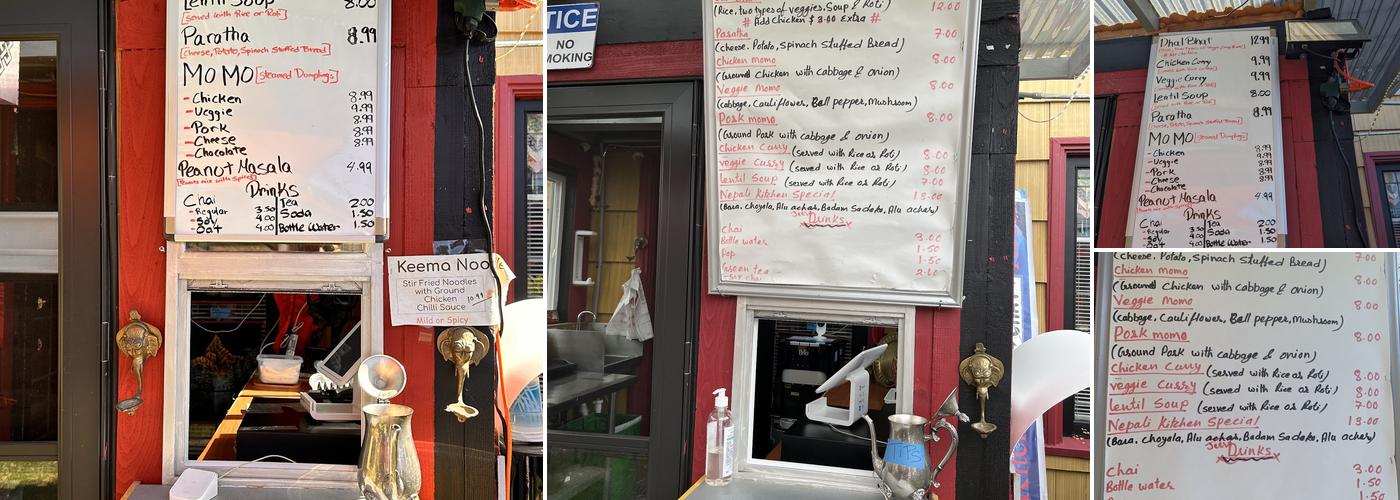 Lentil Soup 8.00
[served with Rice or Roti]
Paratha 8.99
[Cheese, Potato, Spinach Stuffed Bread]
MOMO [steamed Dumplings]
- Chicken 8.99
- Veggie 9.99
- Pork 8.99
- Cheese 8.99
- Chocolate
Peanut Masala 4.99
Drinks
Chai
- Regular 3.50
- Soy 4.00
- Oat 4.00
Tea 2.00
Soda 1.50
Bottle Water 1.50
Keema Noo
Stir Fried Noodles
with Ground
Chicken
Chilli Sauce 10.99
Mild or Spicy
TICE
NO
SMOKING
(Rice, two types of veggies, Soup & Roti) 12.00
# Add Chicken $ 3.00 Extra #
Paratha 7.00
(Cheese, Potato, Spinach Stuffed Bread)
Chicken momo 8.00
(Ground Chicken with cabbage & onion)
Veggie Momo 8.00
(cabbage, Cauliflower, Bell pepper, Mushroom)
Pork momo 8.00
(Ground Pork with cabbage & onion)
Chicken Curry (served with Rice or Roti) 8.00
veggie Curry (served with Rice or Roti) 8.00
lentil Soup (served with Rice or Roti) 7.00
Nepali Kitchen Special 13.00
(Bara, Choyala, Alu achar, Badam Sadeko, Alu achar)
Drinks
Chai 3.00
Bottle water 1.50
Pop 1.50
Green tea 2.00
TIPS
Dhal Bhat 12.99
Chicken Curry 9.99
Veggie Curry 9.99
Lentil Soup 8.00
[served with Rice or Roti]
Paratha 8.99
[Cheese, Potato, Spinach Stuffed Bread]
MOMO [steamed Dumplings]
- Chicken 8.99
- Veggie 9.99
- Pork 8.99
- Cheese 8.99
- Chocolate
Peanut Masala 4.99
Drinks
Chai
- Regular 3.50
- Soy 4.00
- Oat 4.00
Tea 2.00
Soda 1.50
Bottle Water 1.50
(Cheese, Potato, Spinach Stuffed Bread) 7.00
Chicken momo 8.00
(Ground Chicken with cabbage & onion)
Veggie Momo 8.00
(cabbage, Cauliflower, Bell pepper, Mushroom)
Pork momo 8.00
(Ground Pork with cabbage & onion)
Chicken Curry (served with Rice or Roti) 8.00
veggie Curry (served with Rice or Roti) 8.00
lentil Soup (served with Rice or Roti) 7.00
Nepali Kitchen Special 13.00
(Bara, Choyala, Alu achar, Badam Sadeko, Alu achar)
Drinks
Chai 3.00
Bottle water 1.50